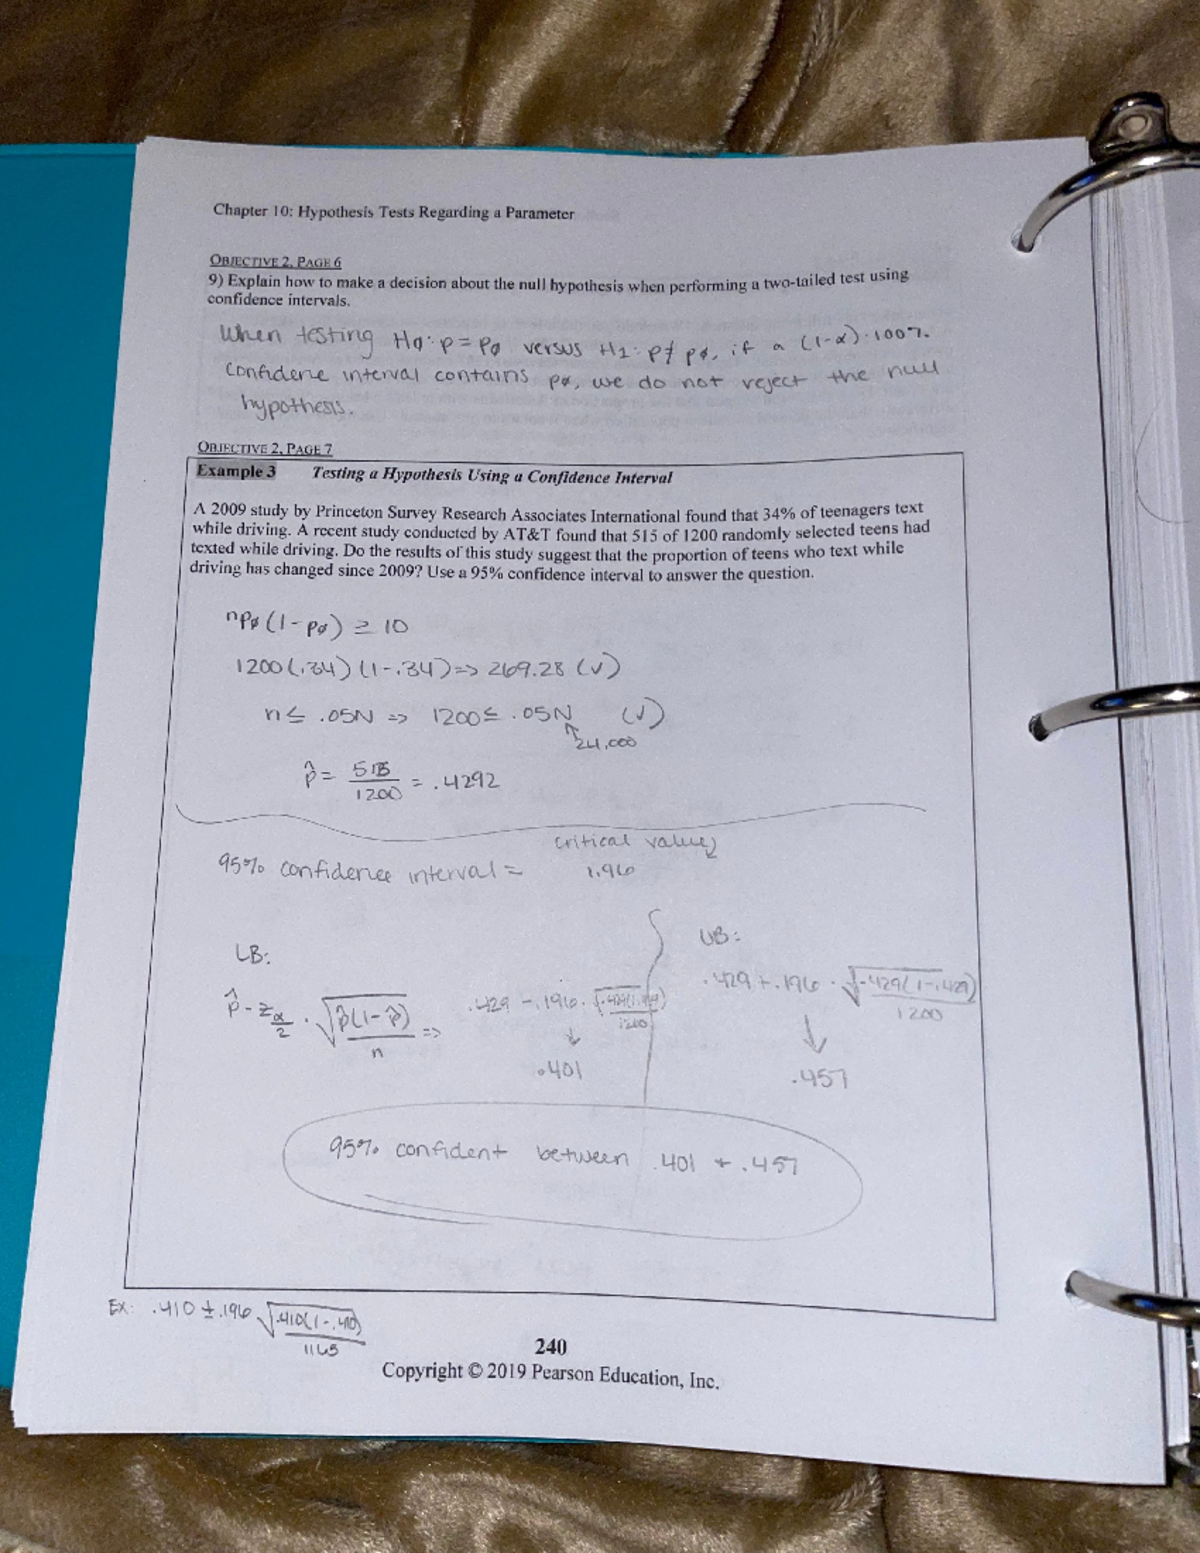 Chapter 10: Hypothesis Tests Regarding a Parameter
OBJECTIVE 2, PAGE 6
9) Explain how to make a decision about the null hypothesis when performing a two-tailed test using
confidence intervals.
When testing H0: p = p0 versus H1: p ≠ p0, if a (1-α)·100%
confidence interval contains p0, we do not reject the null
hypothesis.
OBJECTIVE 2, PAGE 7
Example 3 Testing a Hypothesis Using a Confidence Interval
A 2009 study by Princeton Survey Research Associates International found that 34% of teenagers text
while driving. A recent study conducted by AT&T found that 515 of 1200 randomly selected teens had
texted while driving. Do the results of this study suggest that the proportion of teens who text while
driving has changed since 2009? Use a 95% confidence interval to answer the question.
np0(1-p0) ≥ 10
1200(.34)(1-.34) => 269.28 (√)
n ≤ .05N => 1200 ≤ .05N (√)
↑ 24,000
p̂ = 515/1200 = .4292
critical value
95% confidence interval = 1.96
LB: UB:
p̂ - zα/2 · √p̂(1-p̂)/n => .429 - .196 · √.429(1-.429)/1200 .429 + .196 · √.429(1-.429)/1200
↓ ↓
.401 .457
95% confident between .401 + .457
Ex: .410 ± .196 √.410(1-.410)/1165
240
Copyright © 2019 Pearson Education, Inc.